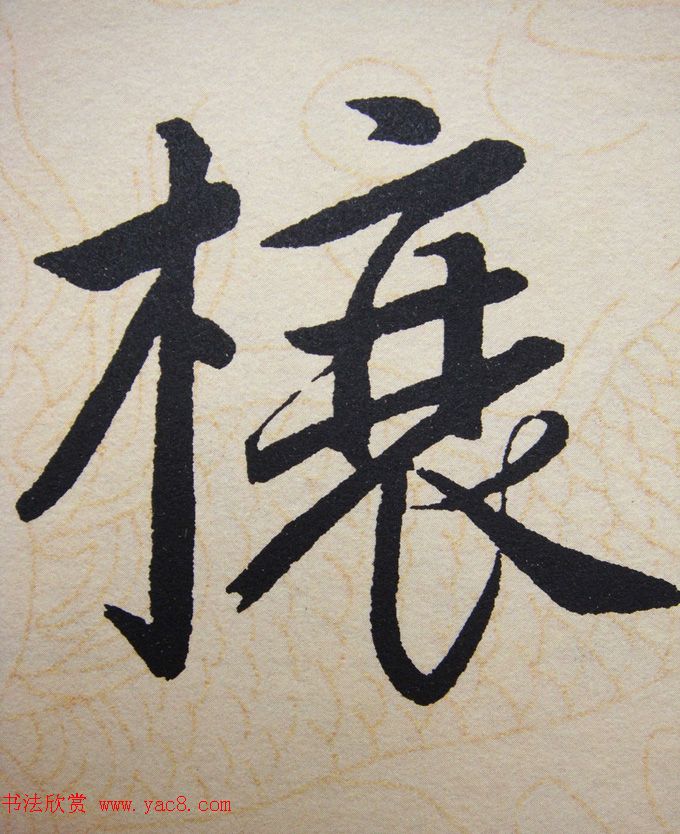 欀
书法欣赏 www.yac8.com